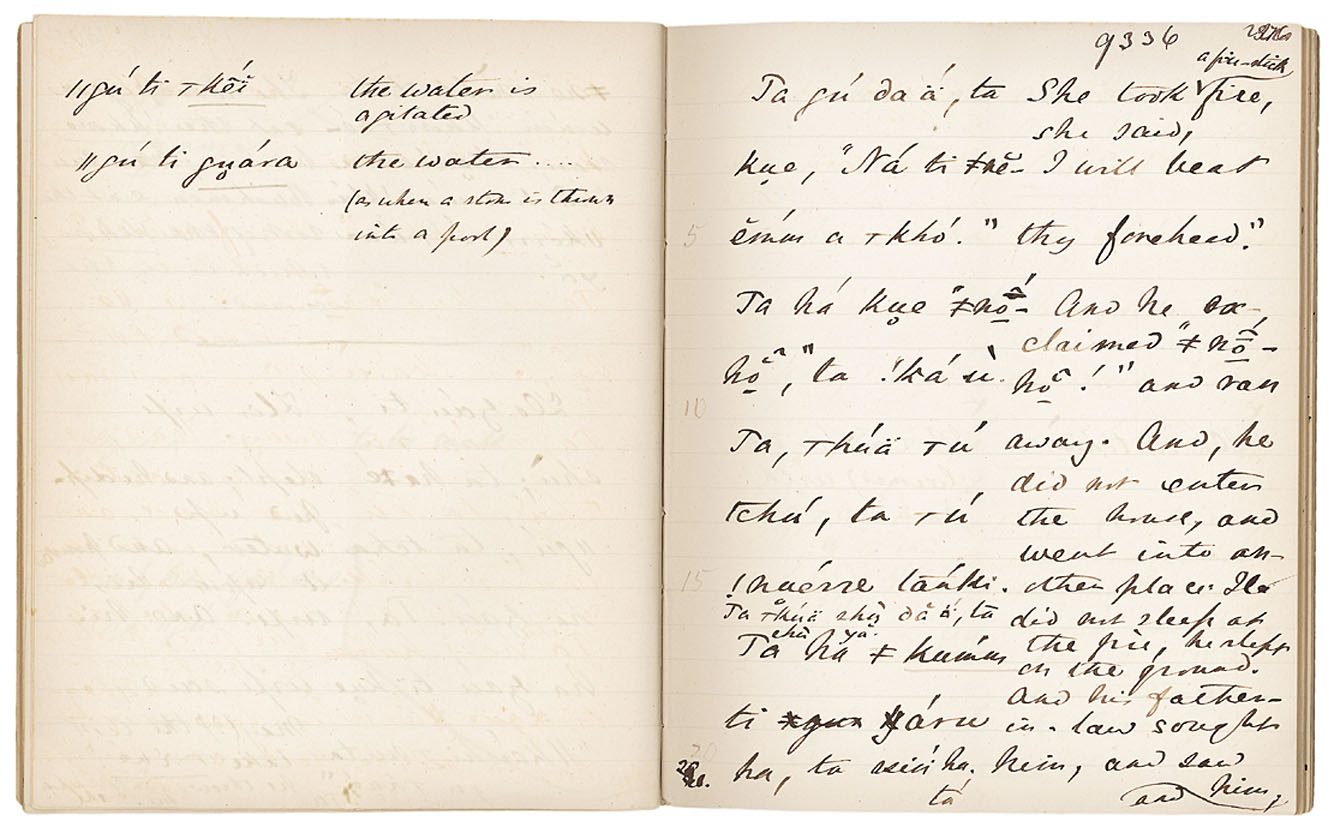 ǁgú ti ⊤kẽí the water is
agitated
ǁgú ti gu̥ára the water ....
(as when a stone is thrown
into a pool)
9336
a fire-stick
Ta gú daä́, ta She took fire,
she said,
ku̥e, "Ná ti ǂnĕ- I will beat
5 ĕḿm a ⊤khó." thy forehead."
Ta há ku̥e "ǂnṓ- And he ex-
claimed "ǂnṓ-
hõ," ta !ká ù. hõ!" and ran
10
Ta, ⊤húä ⊤ú away. And, he
did not enter
tchú, ta ⊤ú the house, and
went into an-
15 !nuérre taúki. other place. He
Ta ⊤húä shú dăä́, ta did not sleep at
chú yä.
Ta há ǂkumm the fire, he slept
on the ground.
And his father-
ti gáru in-law sought
20
ha, ta ha. him, and saw
tá and him,